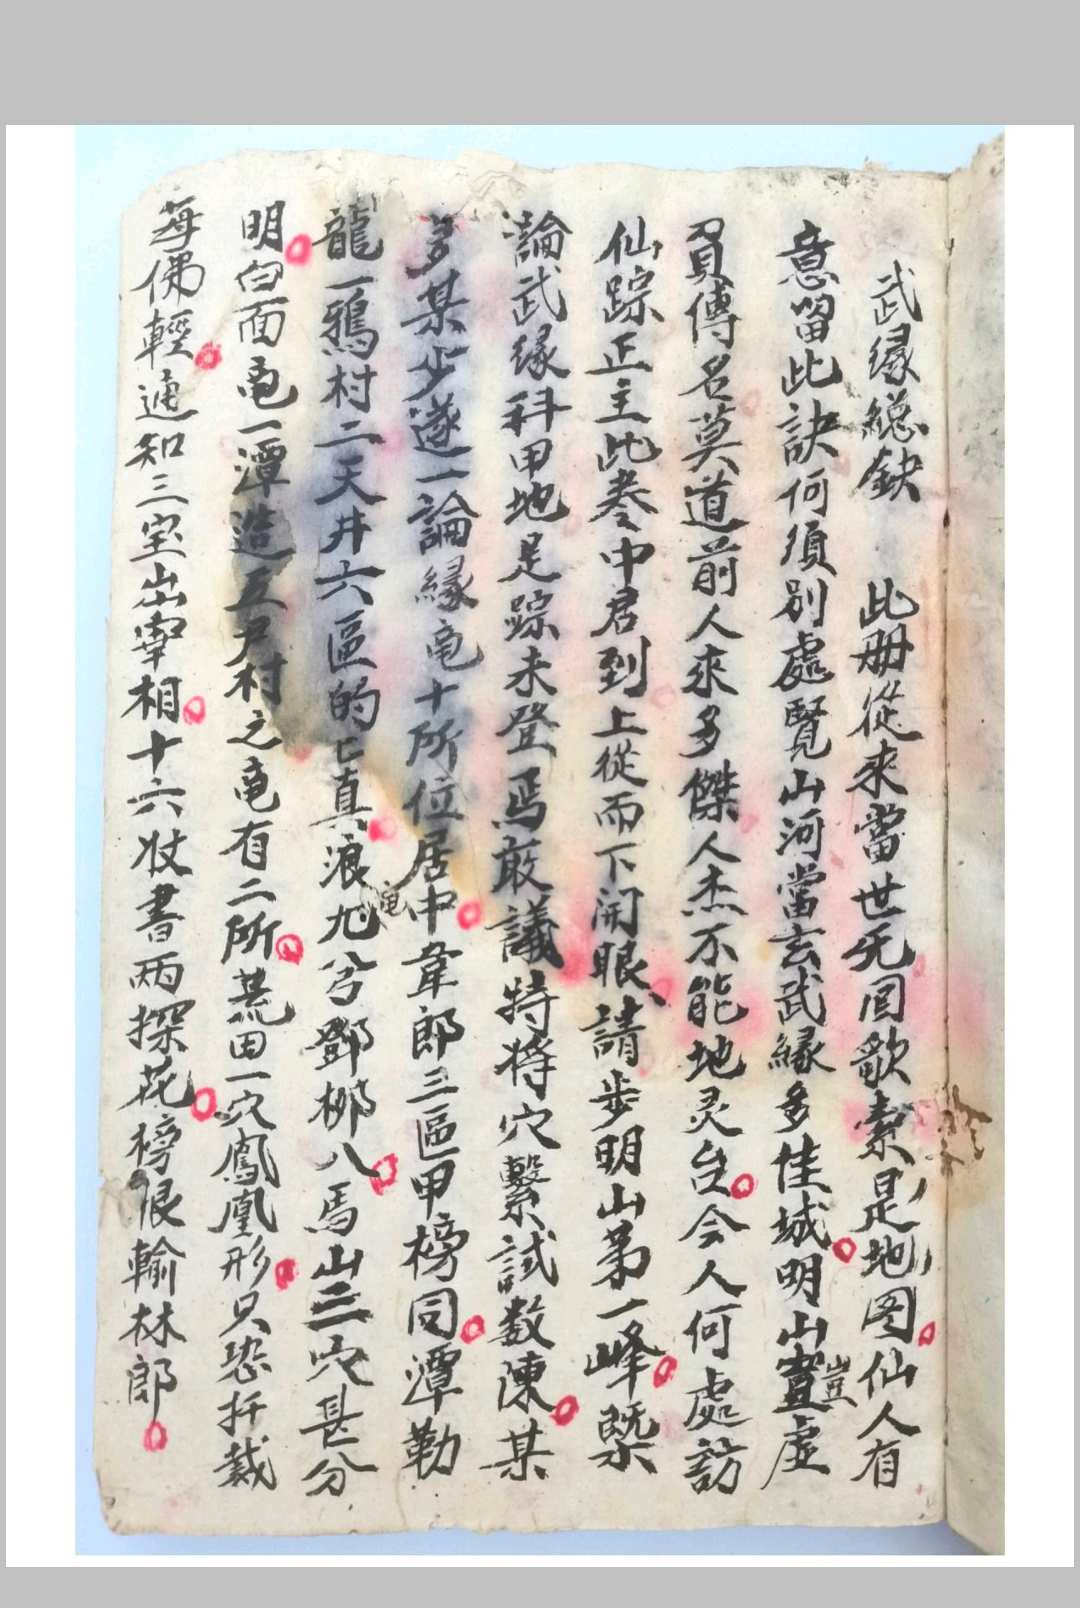 武緣總鈌　此册從來當世无囬歌素是地图仙人有
意留此訣何須别處覽山河當玄武緣多佳城明山豈虛
負傅名莫道前人來多傑人杰不能地灵台今人何處訪
仙踪正主此卷中君到上從而下開眼請步明山第一峰槩
論武緣科甲地是踪未登焉敢議特将穴繫試数陳某
多某少遂一論緣黾十所位居中韋郎三區甲榜同潭勒
龍一鴉村二天井六區的亡真浪尤兮鄧柳八馬山三穴甚分
明白面黾一潭造五尹村之黾有二所荒田一穴鳳凰形只恐扦裁
每佛輕通知三宝出宰相十六妝書两探花榜恨輸林郎